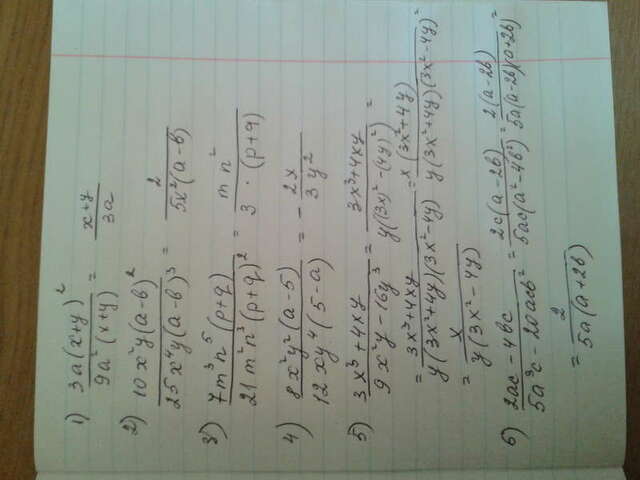 1) 3a(x+y)² / 9a²(x+y) = x+y / 3a
2) 10x²y(a-b)² / 25x⁴y(a-b)³ = 2 / 5x²(a-b)
3) 7m³n⁵(p+q) / 21m²n³(p+q)² = mn² / 3·(p+q)
4) 8x²y²(a-5) / 12xy⁴(5-a) = - 2x / 3y²
5) 3x³+4xy / 9x²y-16y³ = 3x³+4xy / y((3x)²-(4y)²) =
= 3x³+4xy / y(3x²+4y)(3x²-4y) = x(3x²+4y) / y(3x²+4y)(3x²-4y) =
= x / y(3x²-4y)
6) 2ac-4bc / 5a³c-20acb² = 2c(a-2b) / 5ac(a²-4b²) = 2(a-2b) / 5a(a-2b)(a+2b) =
= 2 / 5a(a+2b)